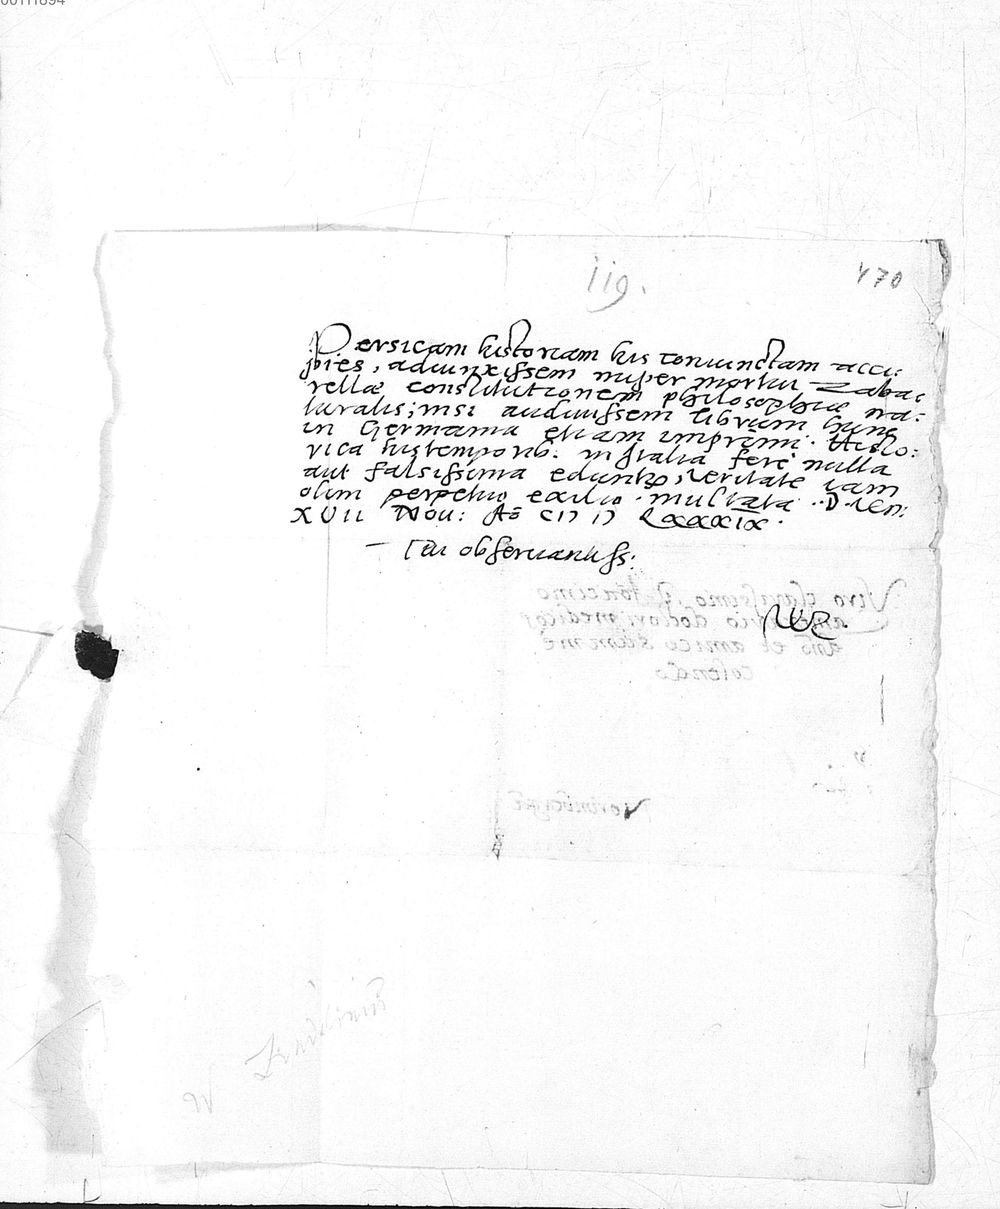 00111894
119.
470
Persicam historiam his coniunctam acci:
pies, adiunxissem nuper mortui Zaba:
rellæ constitutionem philosophiæ na:
turalis; nisi audiuissem librum hunc
in Germania etiam imprimi. Histo:
rica his temporib: in Italia fere nulla
aut falsissima eduntr, veritate iam
olim perpetuo exilio multata. D.
XVII Nou: Aō CIↃ IↃ LXXXXIX.
Tui obseruantiss:
Viro clarissimo
doctori medico,
et amico
colendo